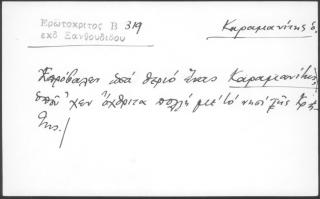 Ερωτοκριτος Β 319
εκδ Ξανθουδιδου
Καραμανίτης ὁ.
Ἐπρόβαλεν ὡσὰ θεριὸ ἕνας Καραμανίτης
ὁποῦ 'χεν ὄχθριτα πολλὴ μὲ τὸ νησὶ τῆς Κρή-
της./